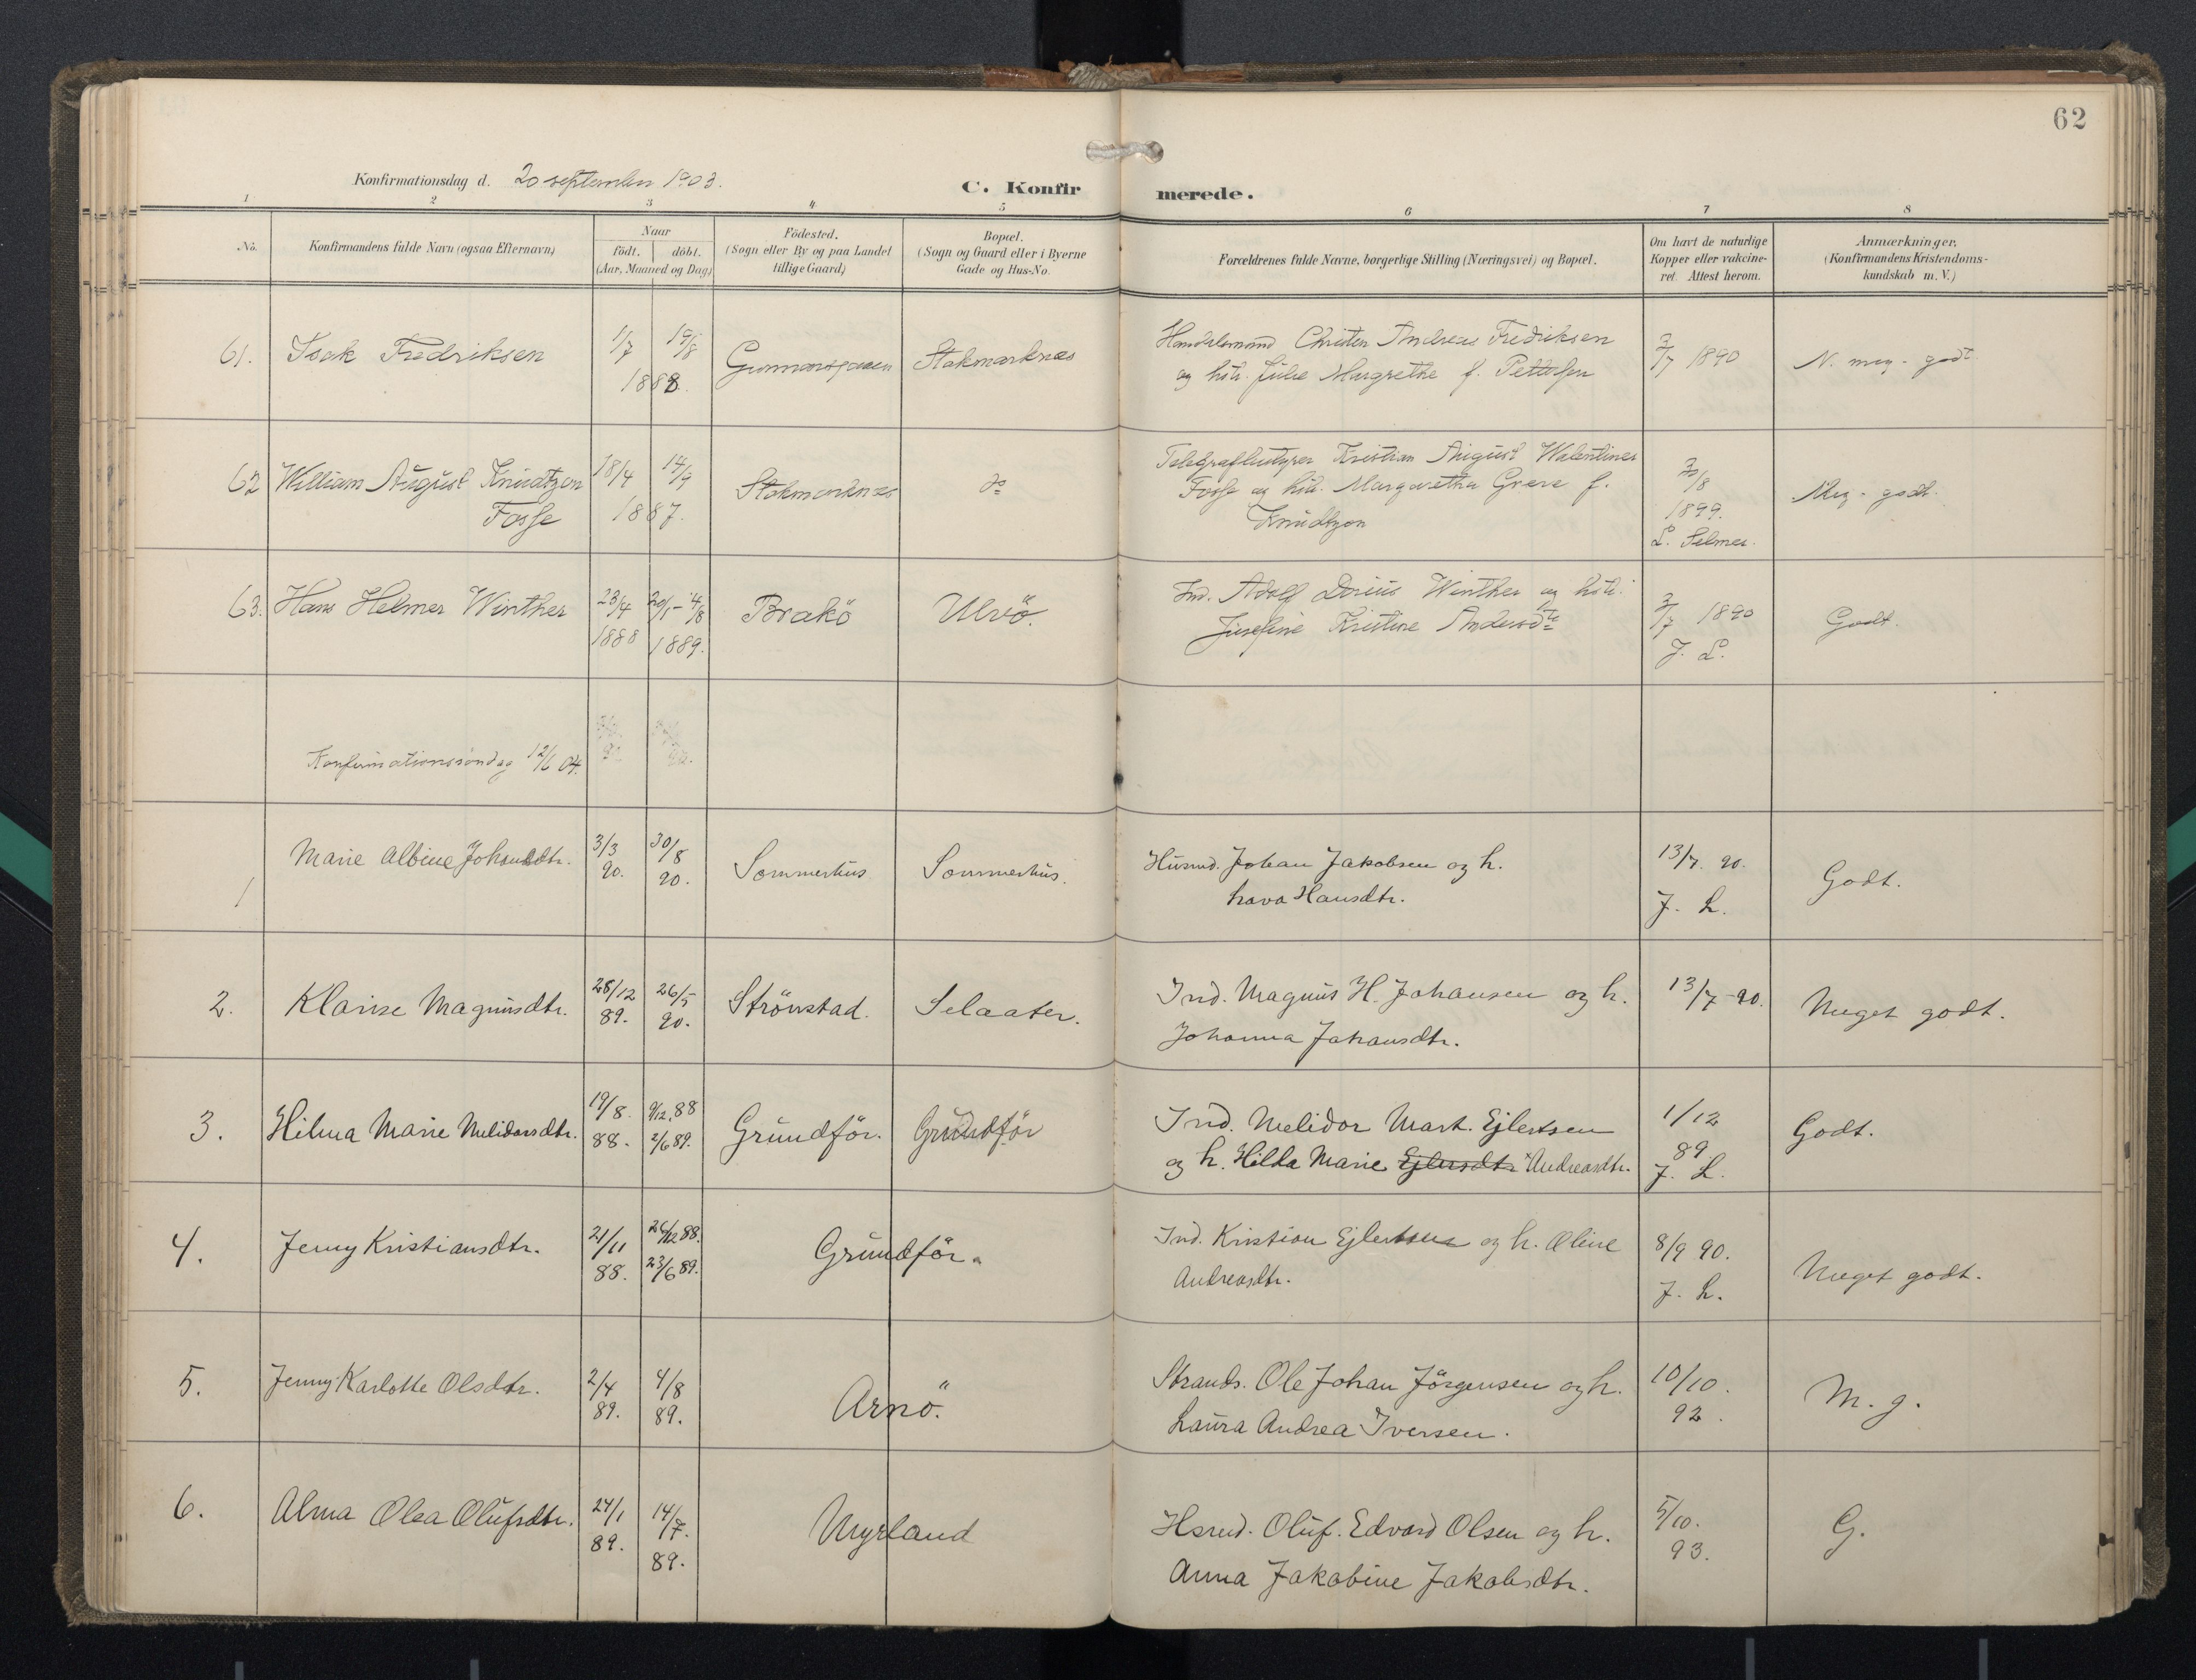 62
Konfirmationsdag d. 20 september 1903.
C. Konfirmerede.
1 2 3 4 5 6 7 8
No.
Konfirmandens fulde Navn (ogsaa Efternavn)
Naar
födt. döbt.
(Aar, Maaned og Dag)
Födested.
(Sogn eller By og paa Landet
tillige Gaard)
Bopæl.
(Sogn og Gaard eller i Byerne
Gade og Hus-No.
Forældrenes fulde Navne, borgerlige Stilling (Næringsvei) og Bopæl.
Om havt de naturlige
Kopper eller vakcine-
ret. Attest herom.
Anmærkninger.
(Konfirmandens Kristendoms-
kundskab m. V.)
61. Isak Fredriksen
1/7
1888.
Stokmarknæs
Handelsmand Christen Andreas Fredriksen
og hstr. Julie Margrethe f. Pettersen
3/7 1890
N. meg. godt
62 William August Knudtzon
Fosse
18/4 14/9
1887.
Stokmarknæs
do
Kristian August Walentinus
Fosse og hstr. Margaretha Greve f.
Knudtzon
1899.
L. Selmer.
Meg. godt.
63. Hans Helmer Winther
23/4
1888
1889.
Brakö
Ulvö.
Ind. Adolf Dorius Winther og hstr.
Josefine Kristine Andersdtr
3/7 1890
J. L.
Godt.
Konfirmationssöndag 12/6 04.
1
Marie Albine Johansdtr.
3/3
90.
30/8
90.
Sommerhus
Sommerhus.
Husmd. Johan Jakobsen og h.
Lava Hansdtr.
13/7. 90.
J. L.
Godt.
2. Klarise Magnusdtr.
28/12
89.
26/5
90.
Strönstad.
Selaater.
Ind. Magnus H. Johansen og h.
Johanna Johansdtr.
13/7-90.
Meget godt.
3. Hilma Marie Melidorsdtr.
19/8.
88.
9/12.88
2/6 89.
Grundför.
Grundför
Ind. Melidor Mart. Ejlertsen
og h. Hilda Marie Ejlersdtr Andreasdtr.
1/12
89.
J. L.
Godt.
4. Jenny Kristiansdtr.
21/11
88.
26/12 88.
23/6 89.
Grundför.
Ind. Kristian Ejlertsen og h. Oline
Andreasdtr.
8/9 90.
J. L.
Meget godt.
5. Jenny Karlotte Olsdtr.
2/4
89.
4/8
89.
Arnö.
Strands. Ole Johan Jörgensen og h.
Laura Andrea Iversen.
10/10.
92.
M. g.
6. Alma Olea Olufsdtr.
24/1
89.
14/7.
89.
Myrland
Hsmd. Oluf. Edvard Olsen og h.
Anna Jakobine Jakobsdtr.
5/10.
93.
G.